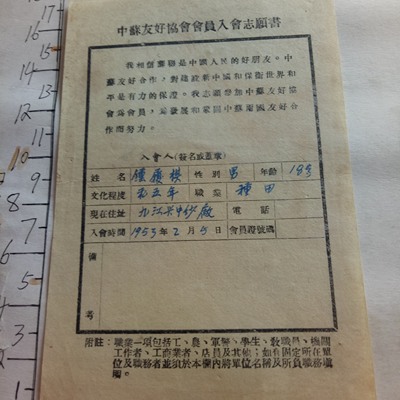 中蘇友好協會會員入會志願書
我相信蘇聯是中國人民的好朋友。中
蘇友好合作,對建設新中國和保衛世界和
平是有力的保證。我志願參加中蘇友好協
會爲會員,爲發展和鞏固中蘇兩國友好合
作而努力。
入會人(簽名或蓋章)
姓名 性別 男 年齡 18歲
文化程度 初五年 職業 種田
現在住址 九江 電話
入會時間 1953年2月5日 會員證號碼
備
考
附註:職業一項包括工、農、軍警、學生、教職員、機關
工作者、工商業者、店員及其他;如有固定所在單
位及職務者並須於本欄內將單位名稱及所負職務填
明。
17
16
15
14
13
12
11
10
9
8
7
6
5
4
3
2
1
0